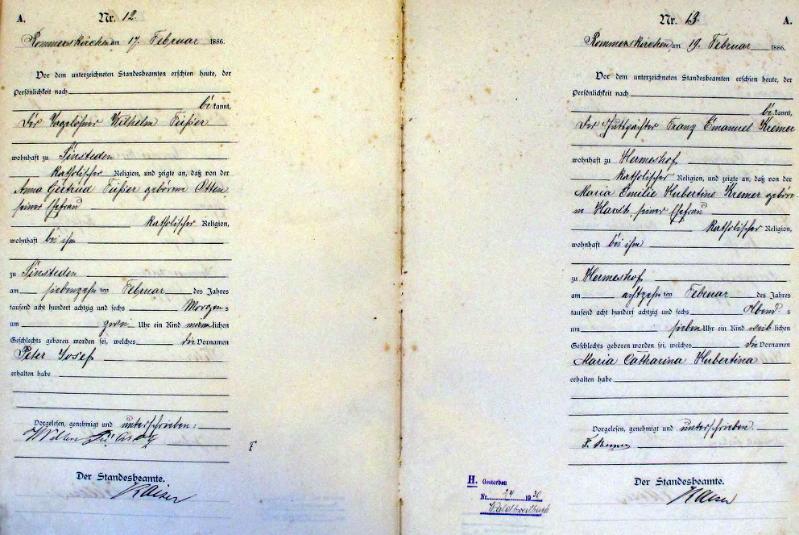 A.
Nr. 12.
Rommerskirchen am 17. Februar 1886.
Vor dem unterzeichneten Standesbeamten erschien heute, der
Persönlichkeit nach
bekannt,
Der Tagelöhner Wilhelm
wohnhaft zu Sinsteden
Katholischer Religion, und zeigte an, daß von der
Anna Gertrud geborene Otten
seiner Ehefrau
Katholischer Religion,
wohnhaft bei ihm
zu Sinsteden
am siebenzehn ten Februar des Jahres
tausend acht hundert achtzig und sechs Morgens
um Uhr ein Kind männlichen
Geschlechts geboren worden sei, welches die Vornamen
Peter Josef
erhalten habe
Vorgelesen, genehmigt und unterschrieben:
Der Standesbeamte.
Kaiser
Nr. 13.
A.
Rommerskirchen am 19. Februar 1886.
Vor dem unterzeichneten Standesbeamten erschien heute, der
Persönlichkeit nach
bekannt,
Der Gutspächter Franz Emanuel Kremer
wohnhaft zu Hermeshof
Katholischer Religion, und zeigte an, daß von der
Maria Emilie Hubertine Kremer gebore
seiner Ehefrau
Katholischer Religion,
wohnhaft bei ihm
zu Hermeshof
am achtzehn ten Februar des Jahres
tausend acht hundert achtzig und sechs Abends
um sieben Uhr ein Kind weiblichen
Geschlechts geboren worden sei, welches die Vornamen
Maria Catharina Hubertina
erhalten habe
Vorgelesen, genehmigt und unterschrieben
Der Standesbeamte.
Kaiser
H. Gestorben
Nr. 24 19
Waldbreitbach